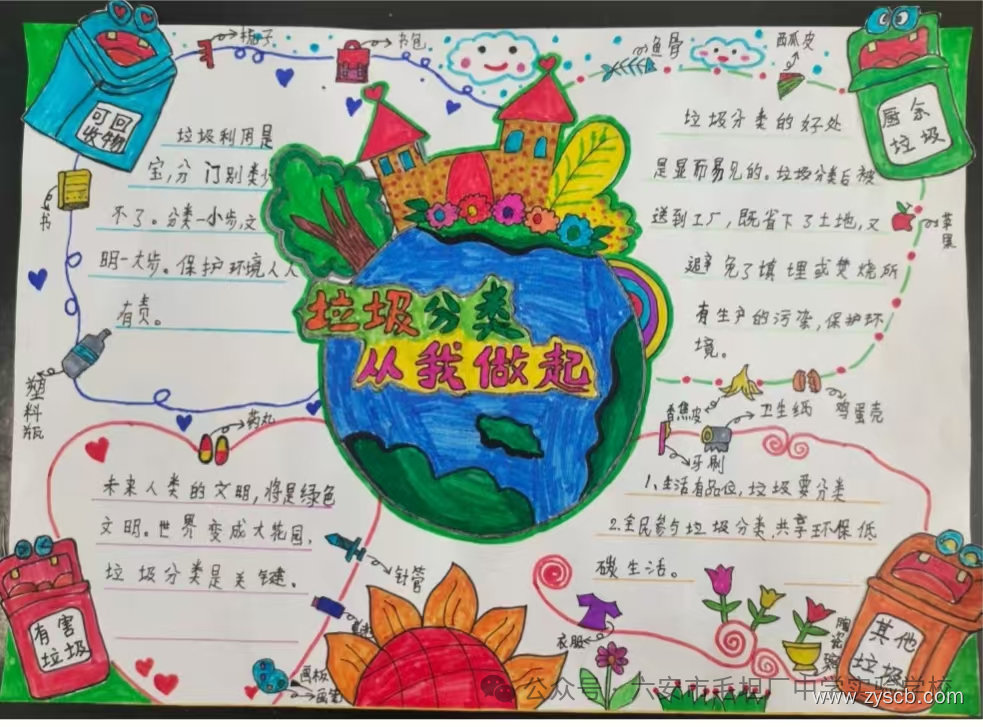 可回
收物
梳子
书包
鱼骨
西瓜皮
厨余
垃圾
垃圾利用是
宝，分门别类少
不了。分类一小步，文
明一大步。保护环境人人
有责。
书
塑料瓶
垃圾分类
从我做起
垃圾分类的好处
是显而易见的。垃圾分类后被
送到工厂，既省下了土地，又
避免了填埋或焚烧所
有生产的污染，保护环
境。
苹果
香焦皮
卫生纸
鸡蛋壳
牙刷
药丸
未来人类的文明，将是绿色
文明。世界变成大花园，
垃圾分类是关键。
针管
1、生活有品位，垃圾要分类
2.全民参与垃圾分类，共享环保低
碳生活。
有害
垃圾
画板
画笔
衣服
陶瓷
其他
垃圾
公众号·六安市毛坦厂中学实验学校
www.zyscb.com